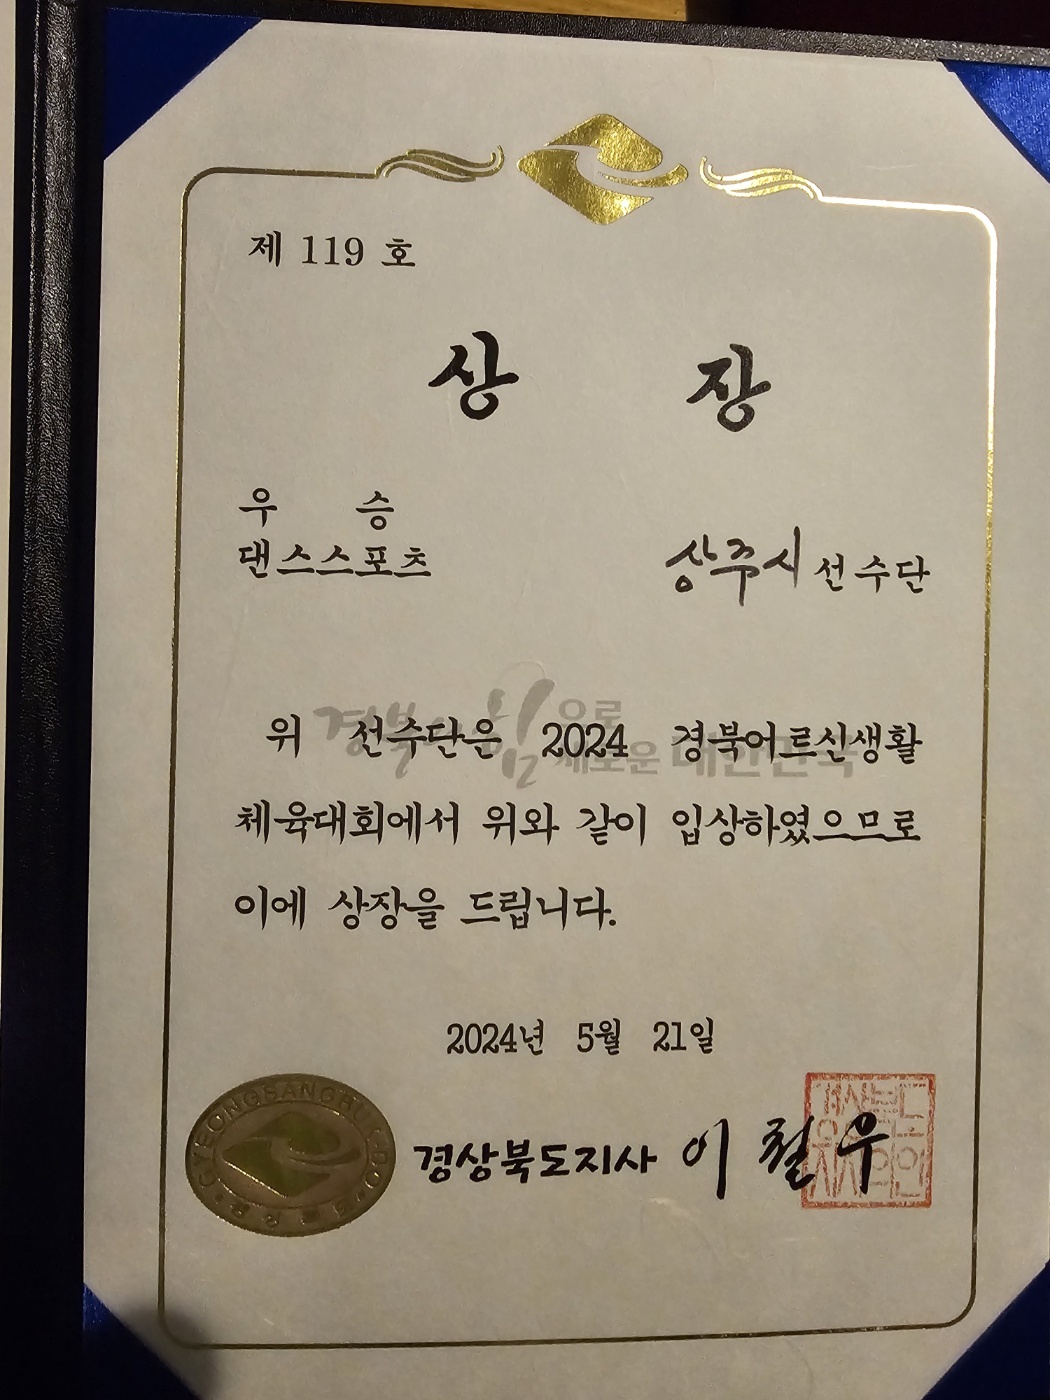 제 119 호
상 장
우 승
댄스스포츠
상주시 선수단
경북의 힘으로
새로운 대한민국
위 선수단은 2024 경북어르신생활
체육대회에서 위와 같이 입상하였으므로
이에 상장을 드립니다.
2024년 5월 21일
GYEONGSANGBUK-DO
경상북도
경상북도지사 이철우